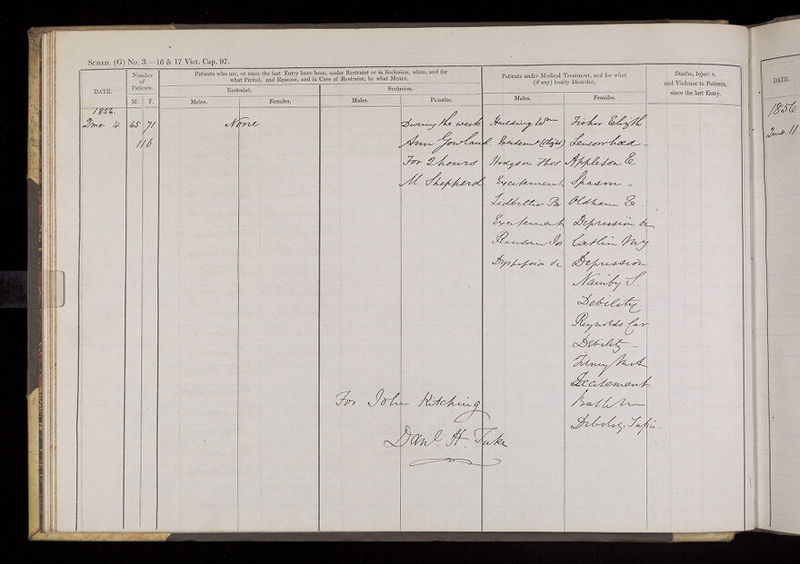 SCHED. (G) No. 3.—16 & 17 Vict. Cap. 97.
DATE.
Number of Patients.
M. F.
Patients who are, or since the last Entry have been, under Restraint or in Seclusion, when, and for
what Period, and Reasons, and in Case of Restraint, by what Means.
Restraint.
Seclusion.
Males. Females. Males. Females.
Patients under Medical Treatment, and for what
(if any) bodily Disorder.
Males. Females.
Deaths, Injuries,
and Violence to Patients,
since the last Entry.
1856.
2mo 4 45 71
116
None
During the week
Ann Gowland
For 2 hours
M. Shepherd
Wm
Excitement (slight)
Hodgson Thos
Excitement
Ledbetter
Excitement
Ransom Jo
Dyspepsia &c
Fisher Elizth
Leucorrhoea
Appleton E
Spasm
Oldham E
Depression &c
Catlin My
Depression
Nainby S.
Debility
Reynolds Car
Debility
Excitement
Debility
For John Kitching
Danl. H. Tuke
DATE.
1856
2mo 11